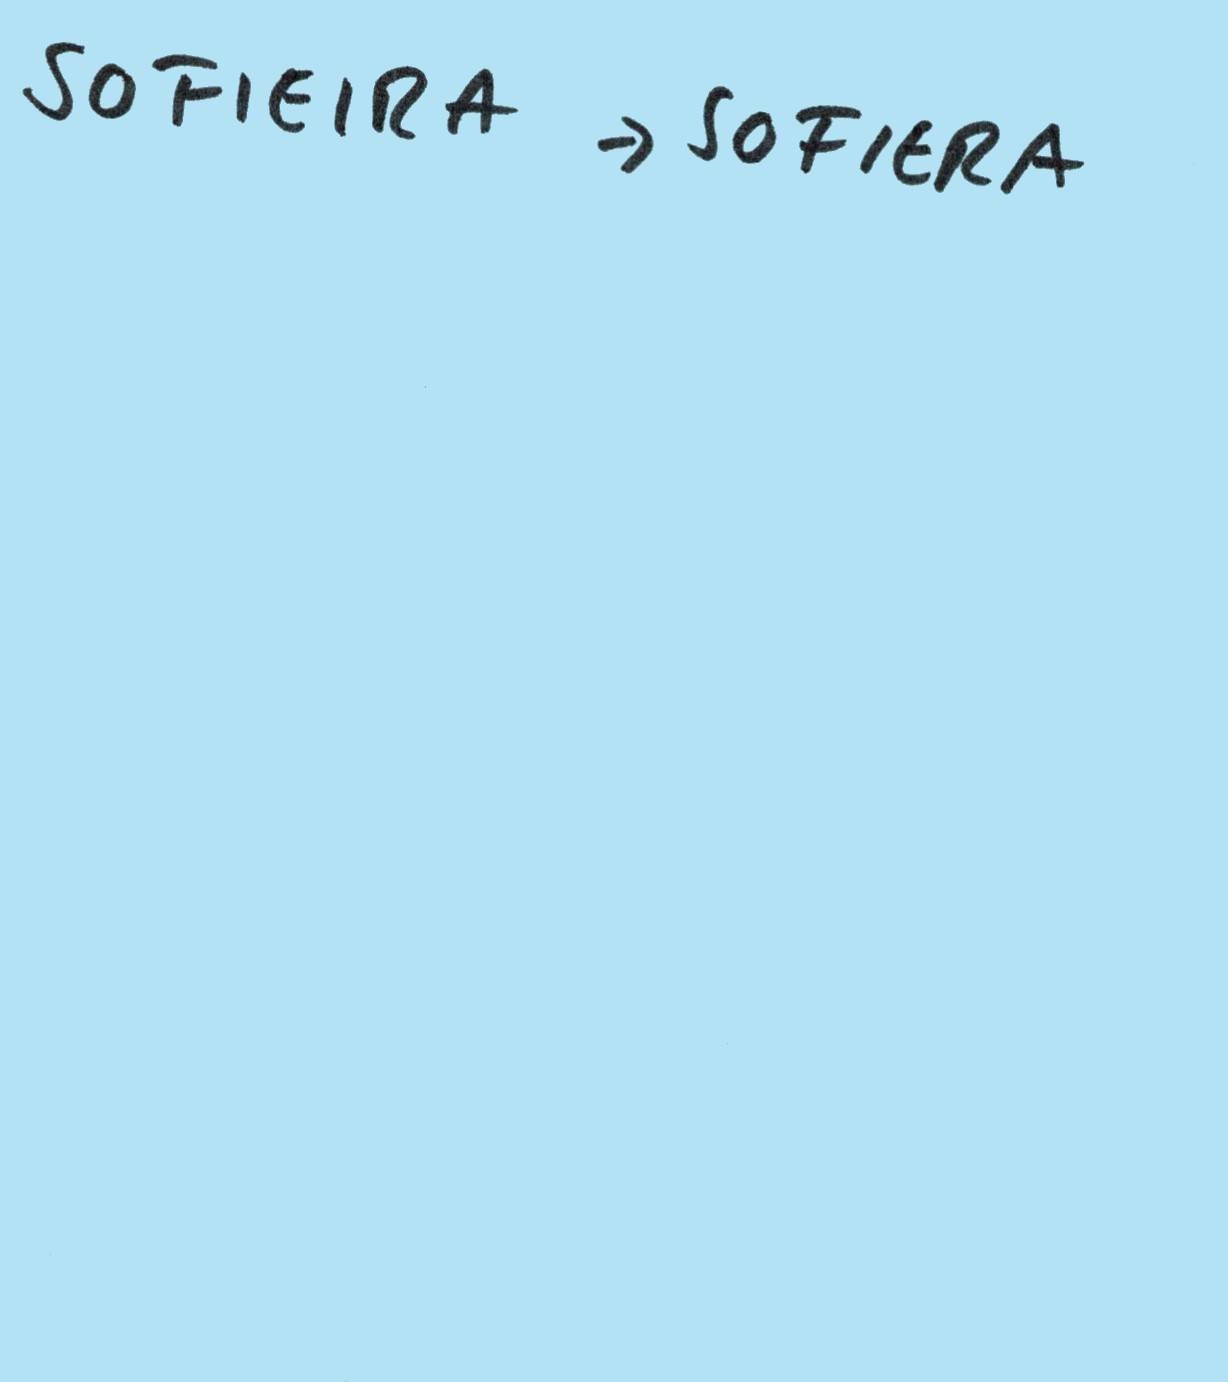 SOFIEIRA → SOFIERA